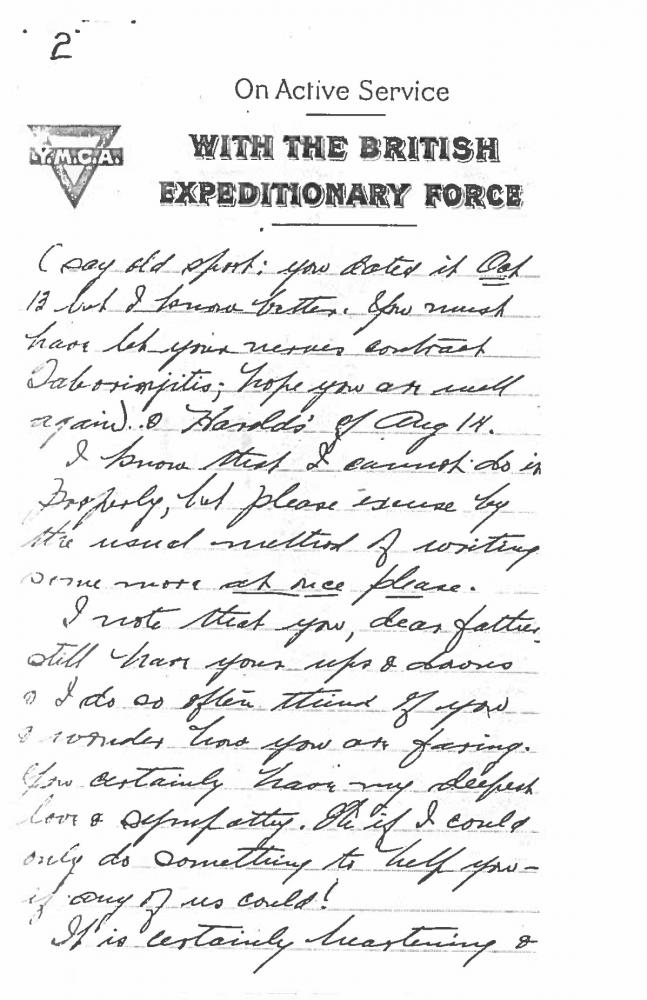 2
On Active Service
Y.M.C.A.
WITH THE BRITISH
EXPEDITIONARY FORCE
(say old sport: you dated it Oct
13 but I know better. You must
have let your nerves contract
again). & Harolds' of Aug 14.
I know that I cannot do it
properly, but please excuse by
the usual method of writing
some more at once please.
I note that you, dear father,
still have your ups & downs
& I do so often think of you
& wonder how you are faring.
You certainly have my deepest
love & sympathy. Oh if I could
only do something to help you –
if any of us could!
It is certainly heartening &